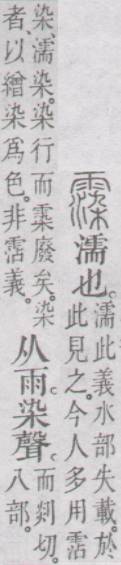 䨬濡也。
濡此義水部失載。於
此見之。今人多用霑
染、濡染。染行而䨬廢矣。染
者、以繒染爲色。非霑義。
从雨染聲。
而剡切。
八部。